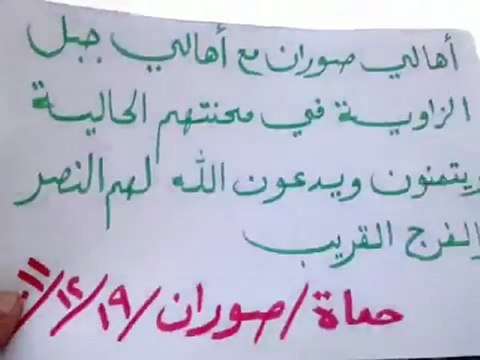 أهالي صوران مع أهالي جبل
الزاوية في محنتهم الحالية
ويتمنون ويدعون الله لهم النصر
والفرج القريب
حماة/صوران/١٢/١٩/